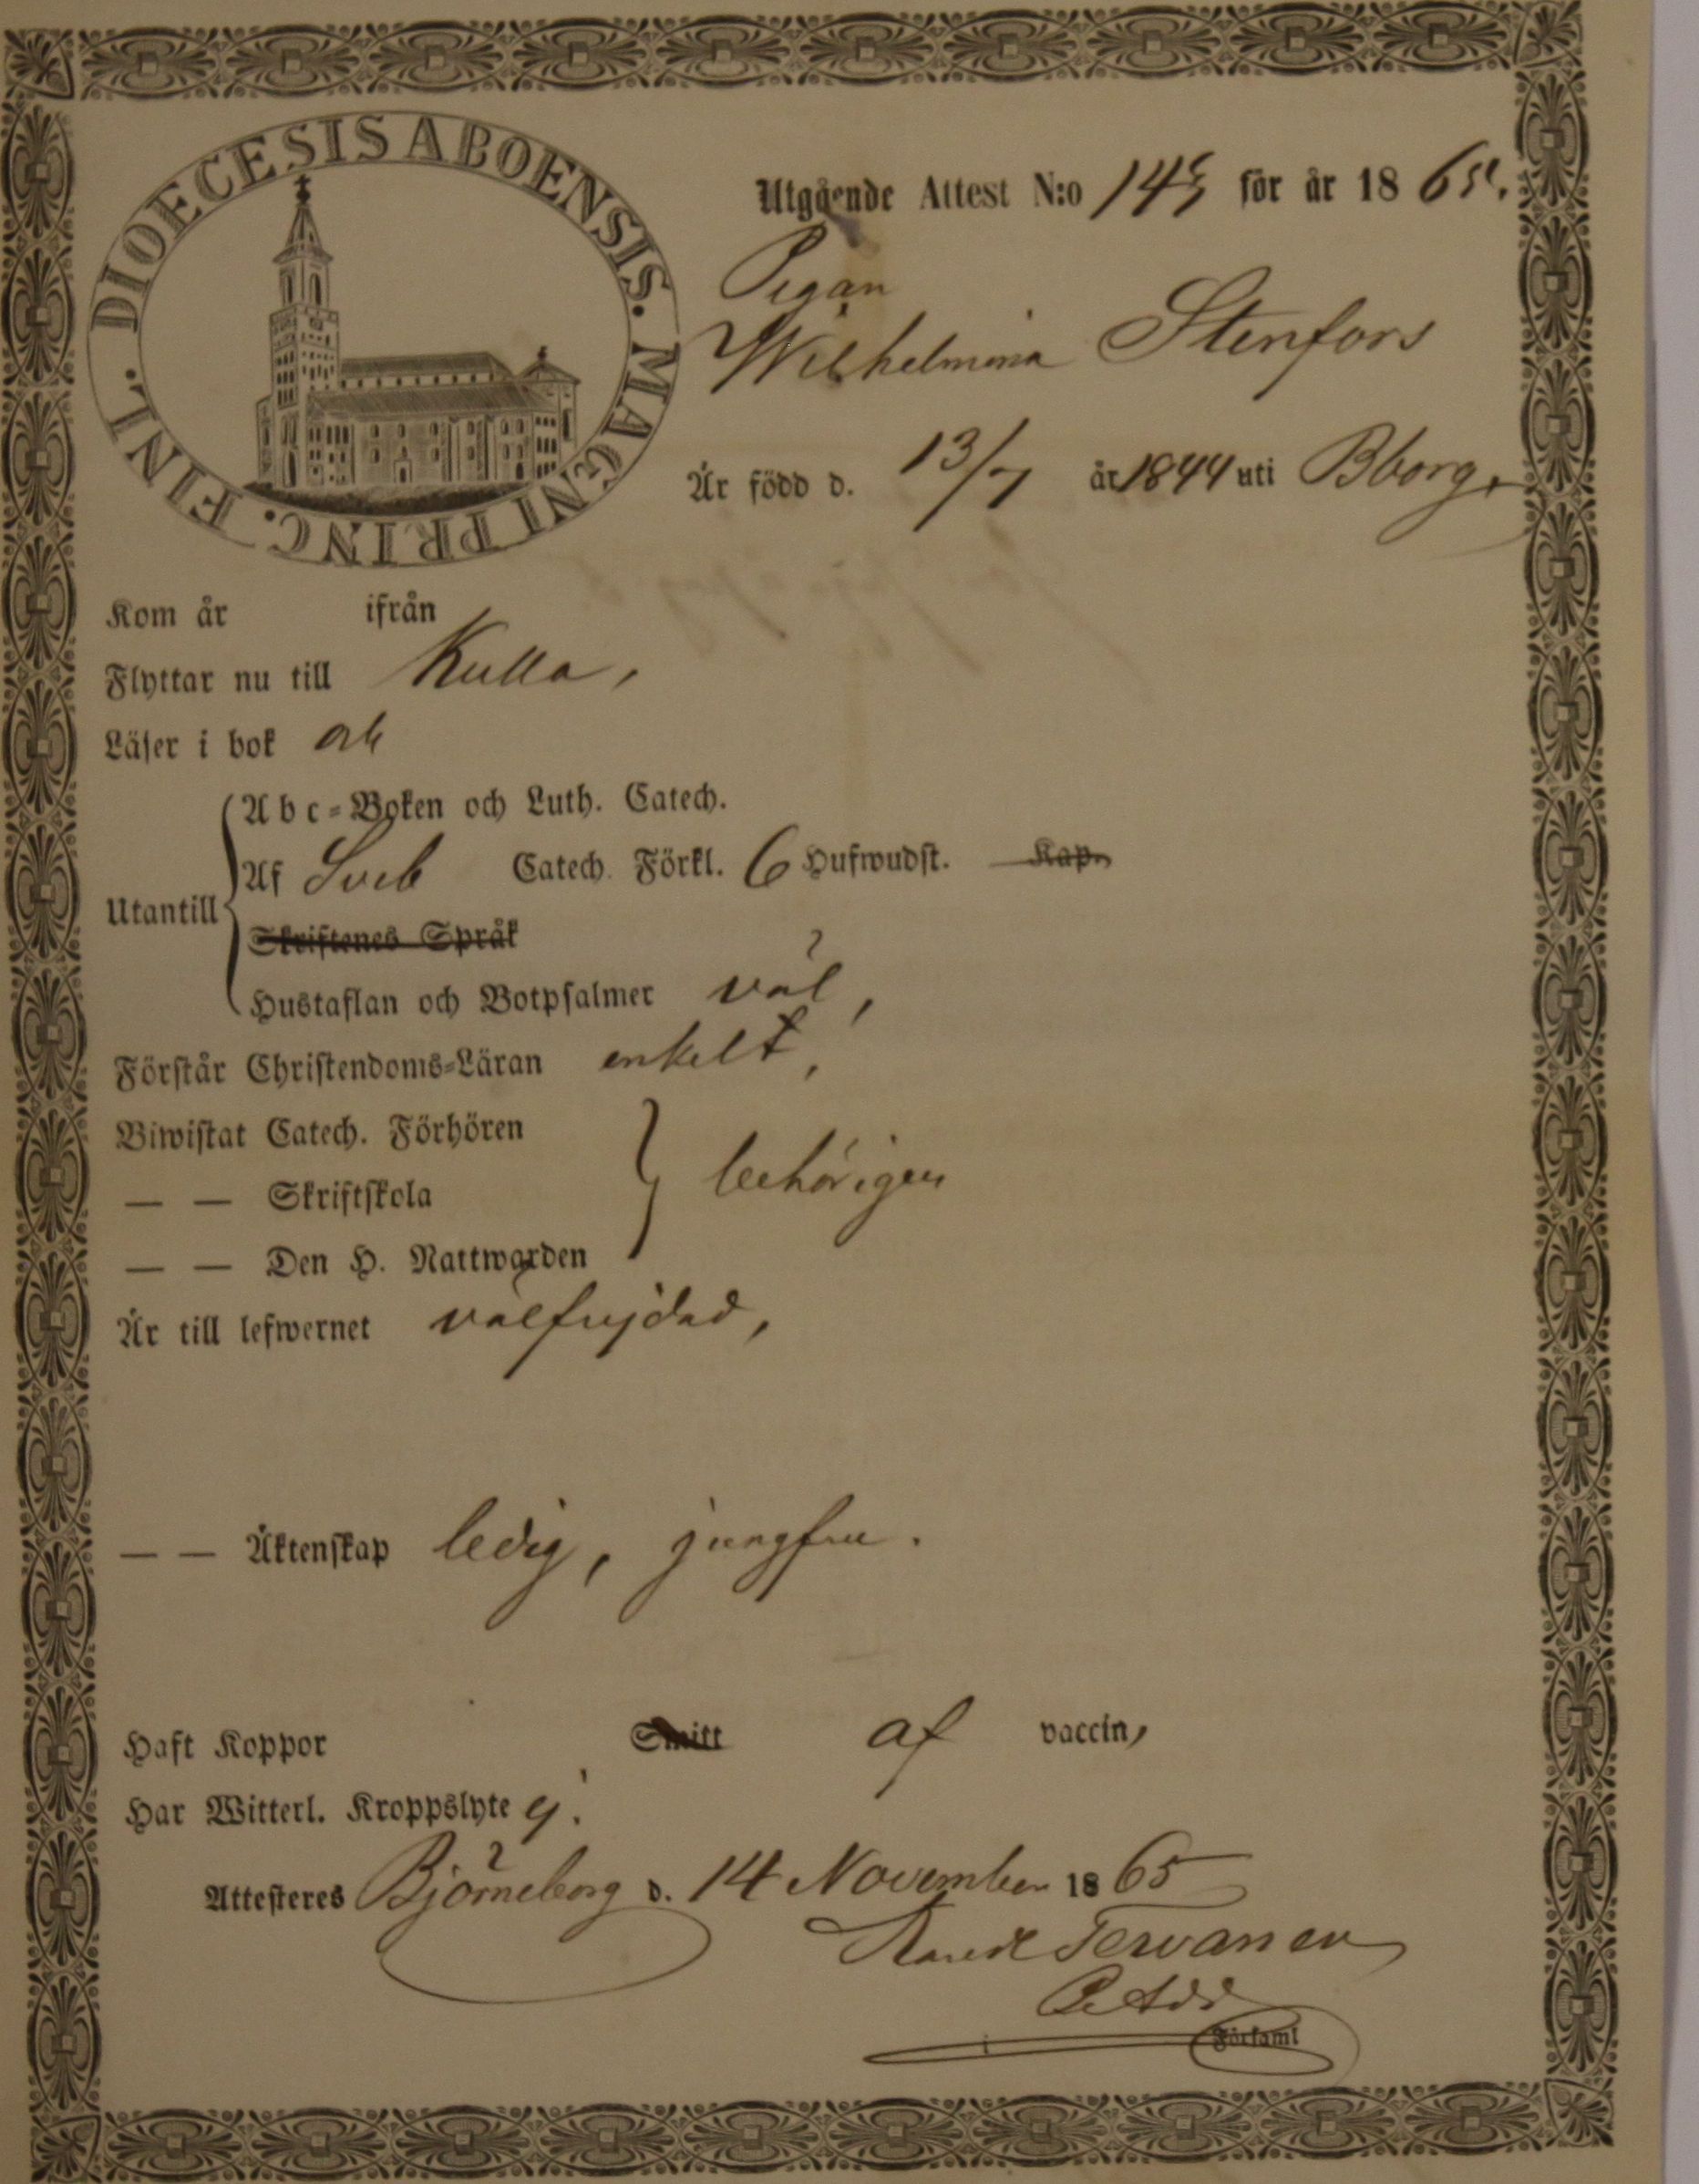 DIOECESIS ABOENSIS. MAGNI PRINC. FINL.
Utgående Attest N:o för år 18 65.
Pigan
Wilhelmina Stenfors
Är född d. 13/7 år 1844 uti Bborg,
Kom år ifrån
Flyttar nu till Kulla,
Läser i bok
Abc-Boken och Luth. Catech.
Af Sveb Catech. Förkl. 6 Hufwudst. Kap.
Utantill
Skriftenes Språk
Hustaflan och Botpsalmer väl,
Förstår Christendoms-Läran enkelt,
Biwistat Catech. Förhören
— — Skriftskola behörigen
— — Den H. Nattwarden
Är till lefwernet välfrejdad,
— — Äktenskap ledig, jungfru.
Haft Koppor Smitt af vaccin,
Har Witterl. Kroppslyte ej.
Attesteres Björneborg d. 14 November 18 65
Tervanen
i Församl